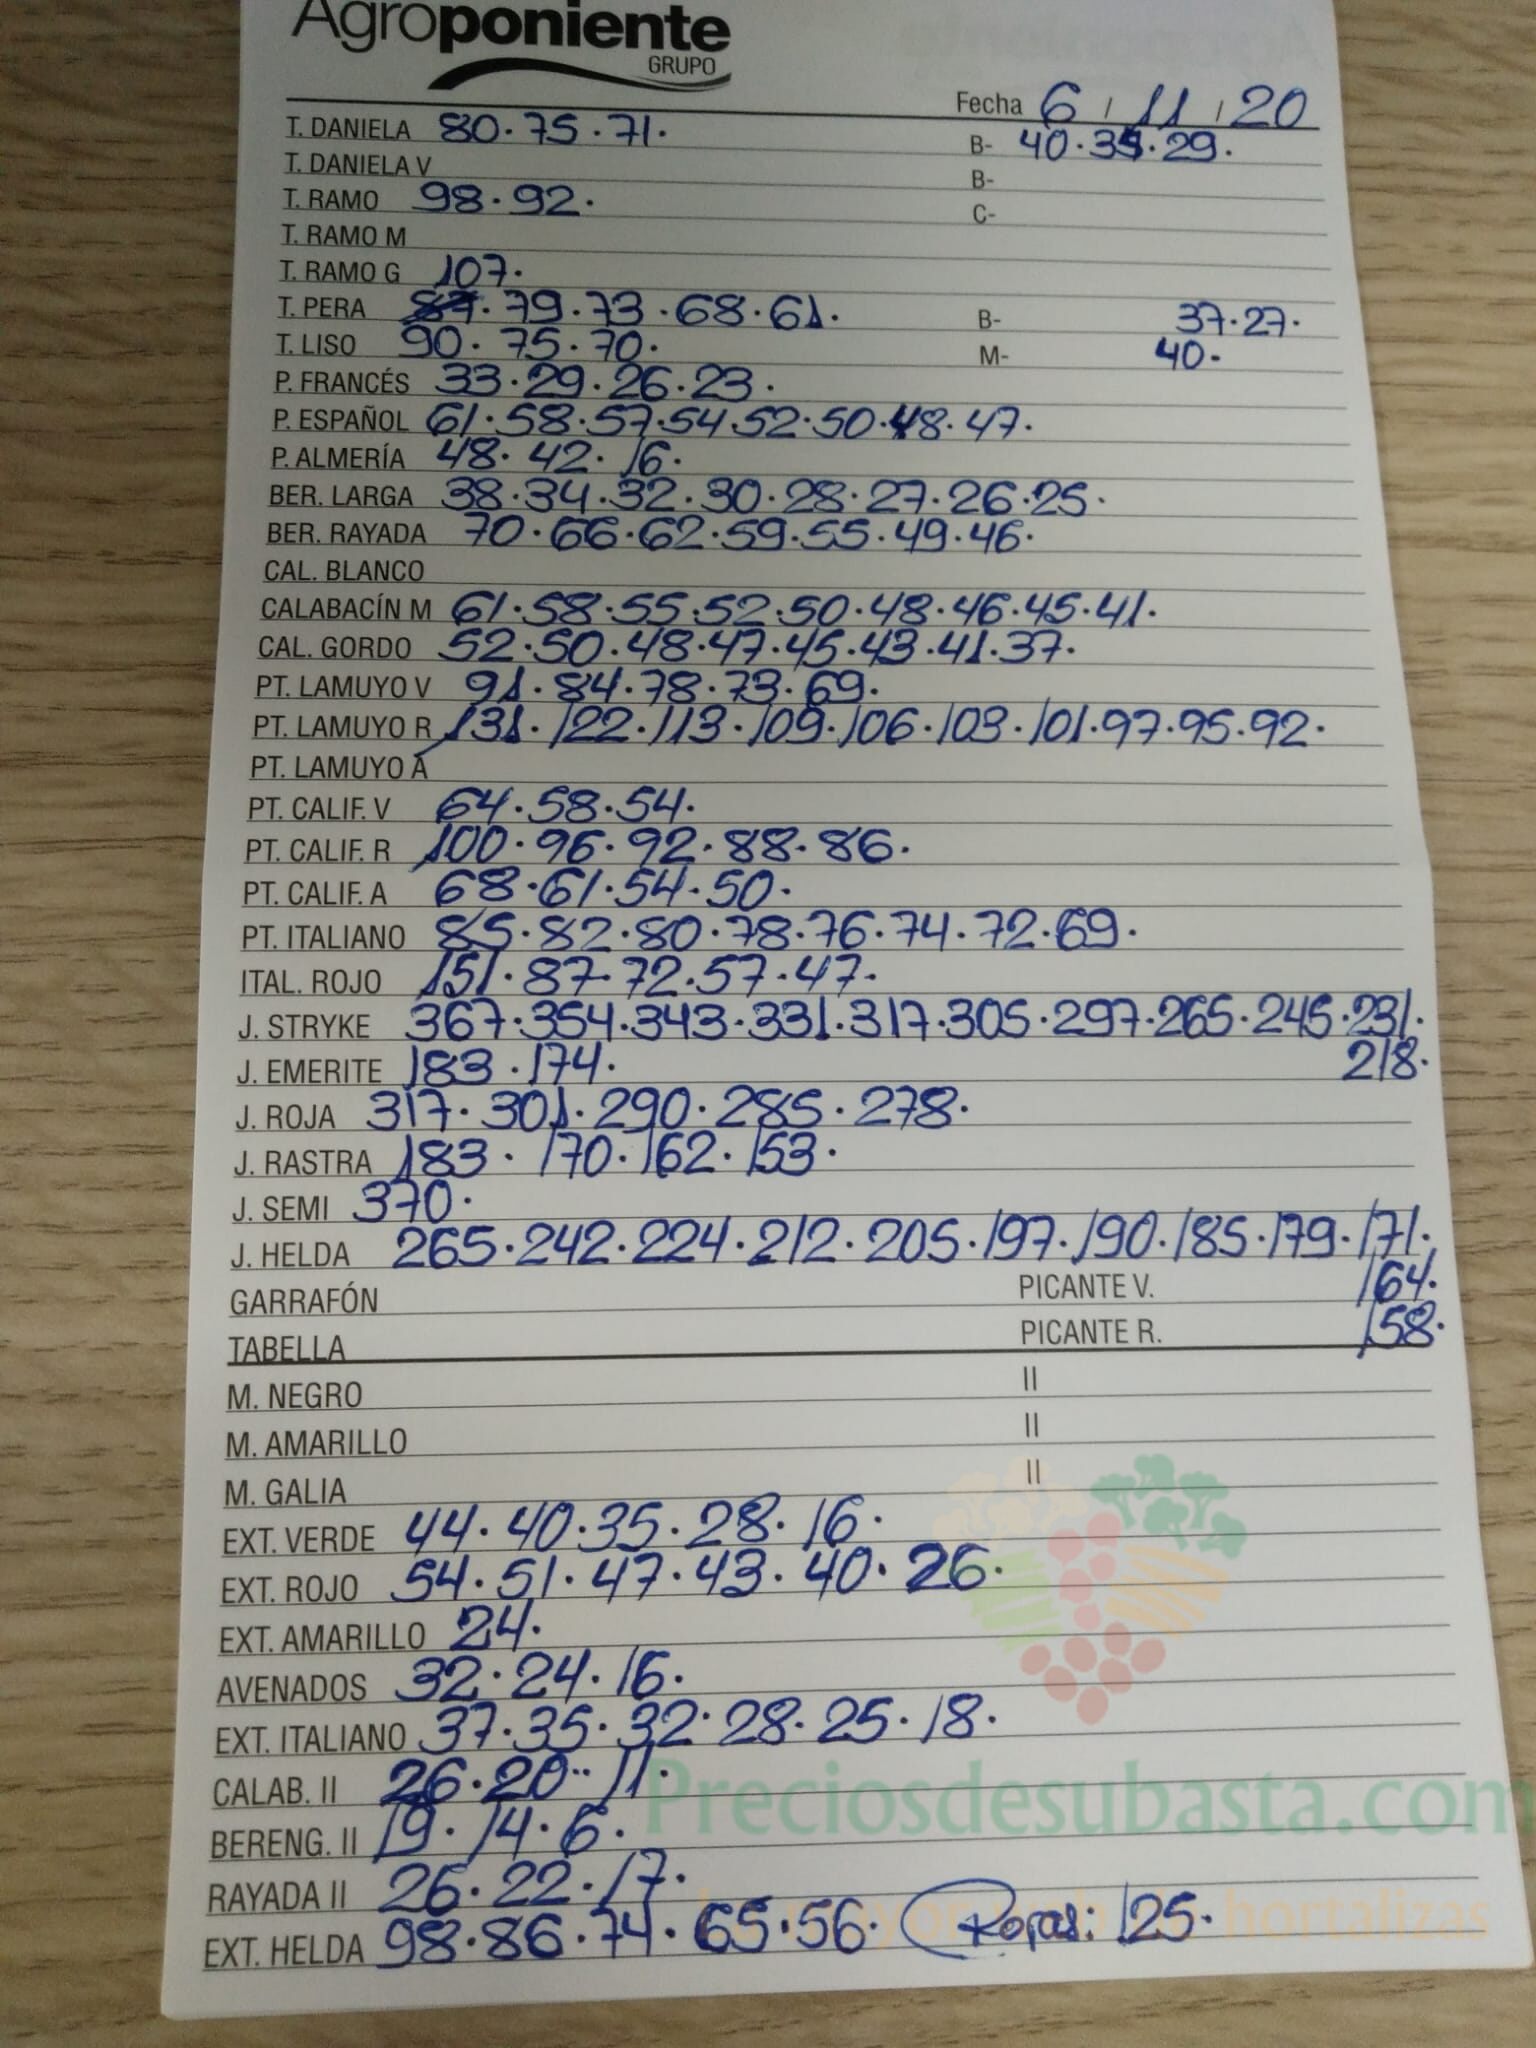 Agroponiente
GRUPO
Fecha 6 / 11 / 20
T. DANIELA 80·75·71· B- 40·35·29·
T. DANIELA V B-
T. RAMO 98·92· C-
T. RAMO M
T. RAMO G 107·
T. PERA 87·79·73·68·61· B- 37·27·
T. LISO 90·75·70· M- 40·
P. FRANCÉS 33·29·26·23·
P. ESPAÑOL 61·58·57·54·52·50·48·47·
P. ALMERÍA 48·42·16·
BER. LARGA 38·34·32·30·28·27·26·25·
BER. RAYADA 70·66·62·59·55·49·46·
CAL. BLANCO
CALABACÍN M 61·58·55·52·50·48·46·45·41·
CAL. GORDO 52·50·48·47·45·43·41·37·
PT. LAMUYO V 91·84·78·73·69·
PT. LAMUYO R 131·122·113·109·106·103·101·97·95·92·
PT. LAMUYO A
PT. CALIF. V 64·58·54·
PT. CALIF. R 100·96·92·88·86·
PT. CALIF. A 68·61·54·50·
PT. ITALIANO 85·82·80·78·76·74·72·69·
ITAL. ROJO 151·87·72·57·47·
J. STRYKE 367·354·343·331·317·305·297·265·245·231·
218·
J. EMERITE 183·174·
J. ROJA 317·301·290·285·278·
J. RASTRA 183·170·162·153·
J. SEMI 370·
J. HELDA 265·242·224·212·205·197·190·185·179·171·
GARRAFÓN PICANTE V. 164·
TABELLA PICANTE R. 158·
M. NEGRO II
M. AMARILLO II
M. GALIA II
EXT. VERDE 44·40·35·28·16·
EXT. ROJO 54·51·47·43·40·26·
EXT. AMARILLO 24·
AVENADOS 32·24·16·
EXT. ITALIANO 37·35·32·28·25·18·
CALAB. II 26·20·11·
Preciosdesubasta.com
BERENG. II 19·14·6·
RAYADA II 26·22·17·
hortalizas
EXT. HELDA 98·86·74·65·56· Rojas: 125·